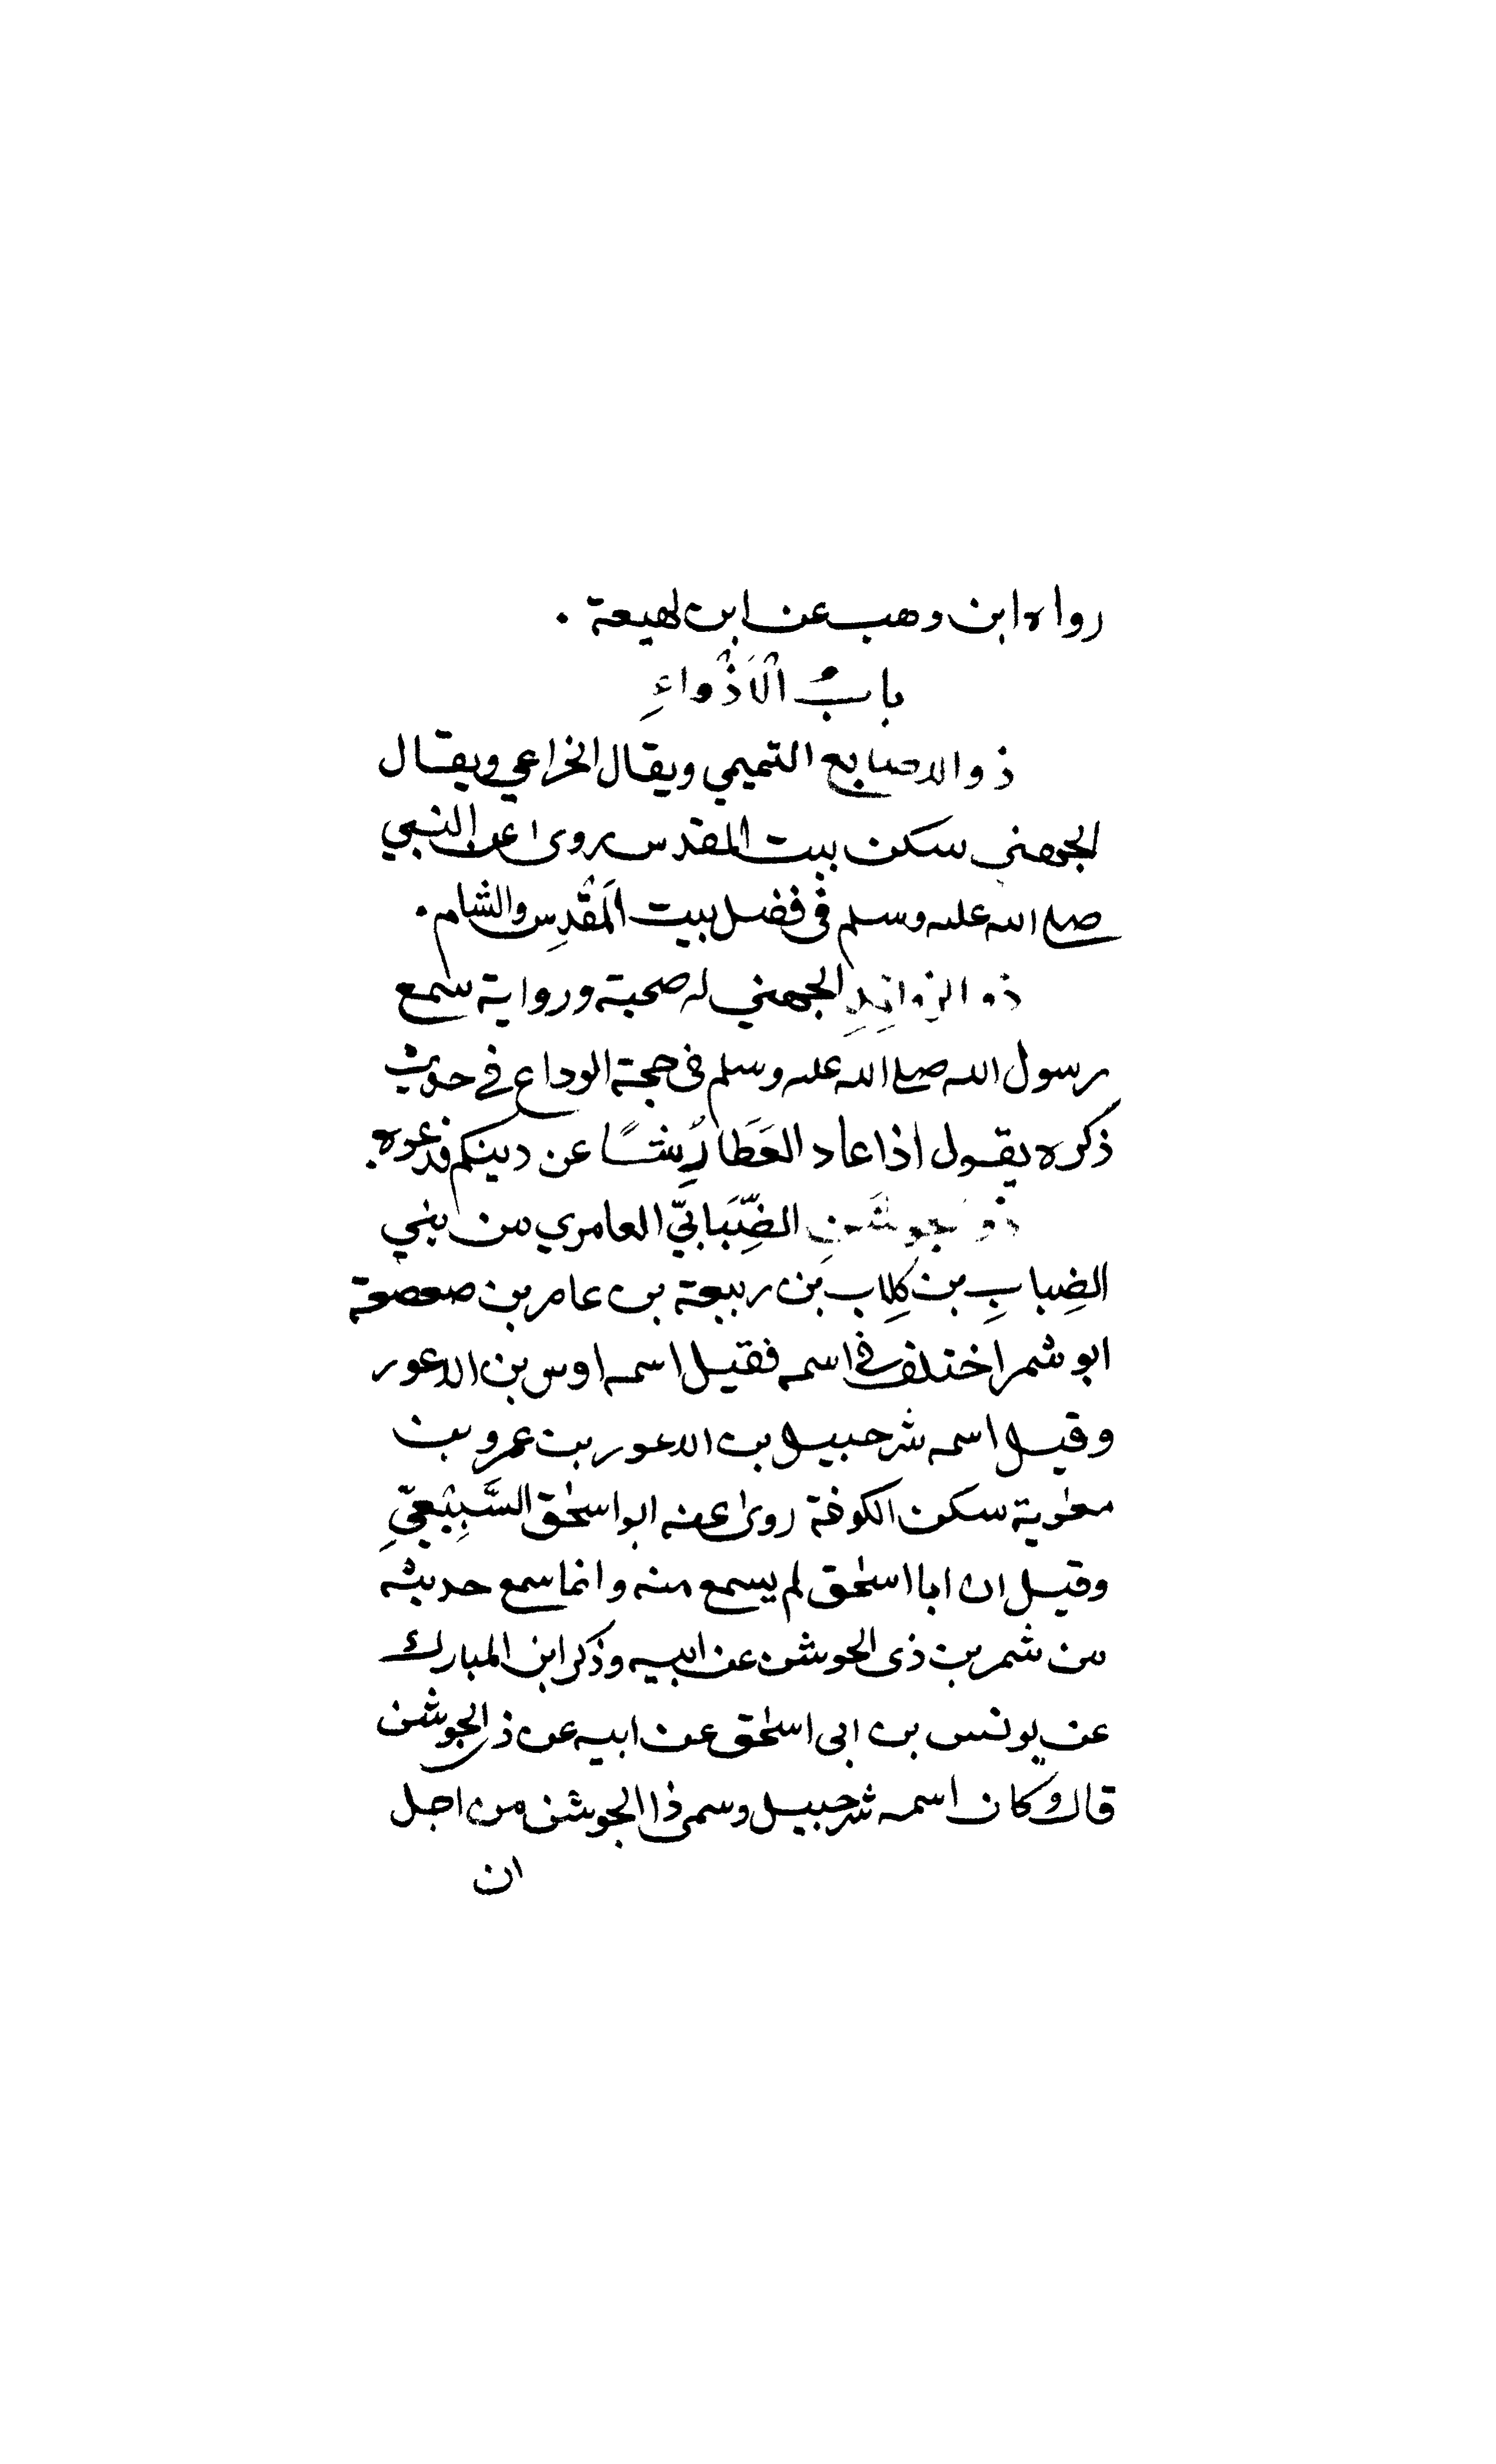 رواه ابن وهب عن ابن لهيعة .
بابُ الْأَذْواءِ
ذو الاصابع التميمي ويقال الخزاعي ويقال
الجهني سكن بيت المقدس روى عن النبي
صلى الله عليه وسلم في فضل بيت المَقْدِس والشام .
ذو الزوائدِ الجهني له صحبة ورواية سمع
رسول الله صلى الله عليه وسلم في حجة الوداع في حديث
ذكره يقول اذا عاد العَطَا رُِشًا عن دينكم فدعوه .
ذو جوشَنِ الضِّبَابيّ العامري من بني
الضِبابِ بن كِلاب بن ربيعة بن عامر بن صعصعة
ابو شمر اختلف في اسمه فقيل اسمه اوس بن الاعور
وقيل اسمه شرحبيل بن الاعور بن عمرو بن
معٰوية سكن الكوفة روى عنه ابو اسحٰق السَّبِيْعيِّ
وقيل ان ابا اسحٰق لم يسمع منه وانما سمع حديثه
من شمر بن ذى الجوشن عن ابيه وذكر ابن المبارك
عن يونس بن ابى اسحٰق عن ابيه عن ذى الجوشن
قال وكان اسمه شرحبيل وسمى ذا الجوشن من اجل
ان